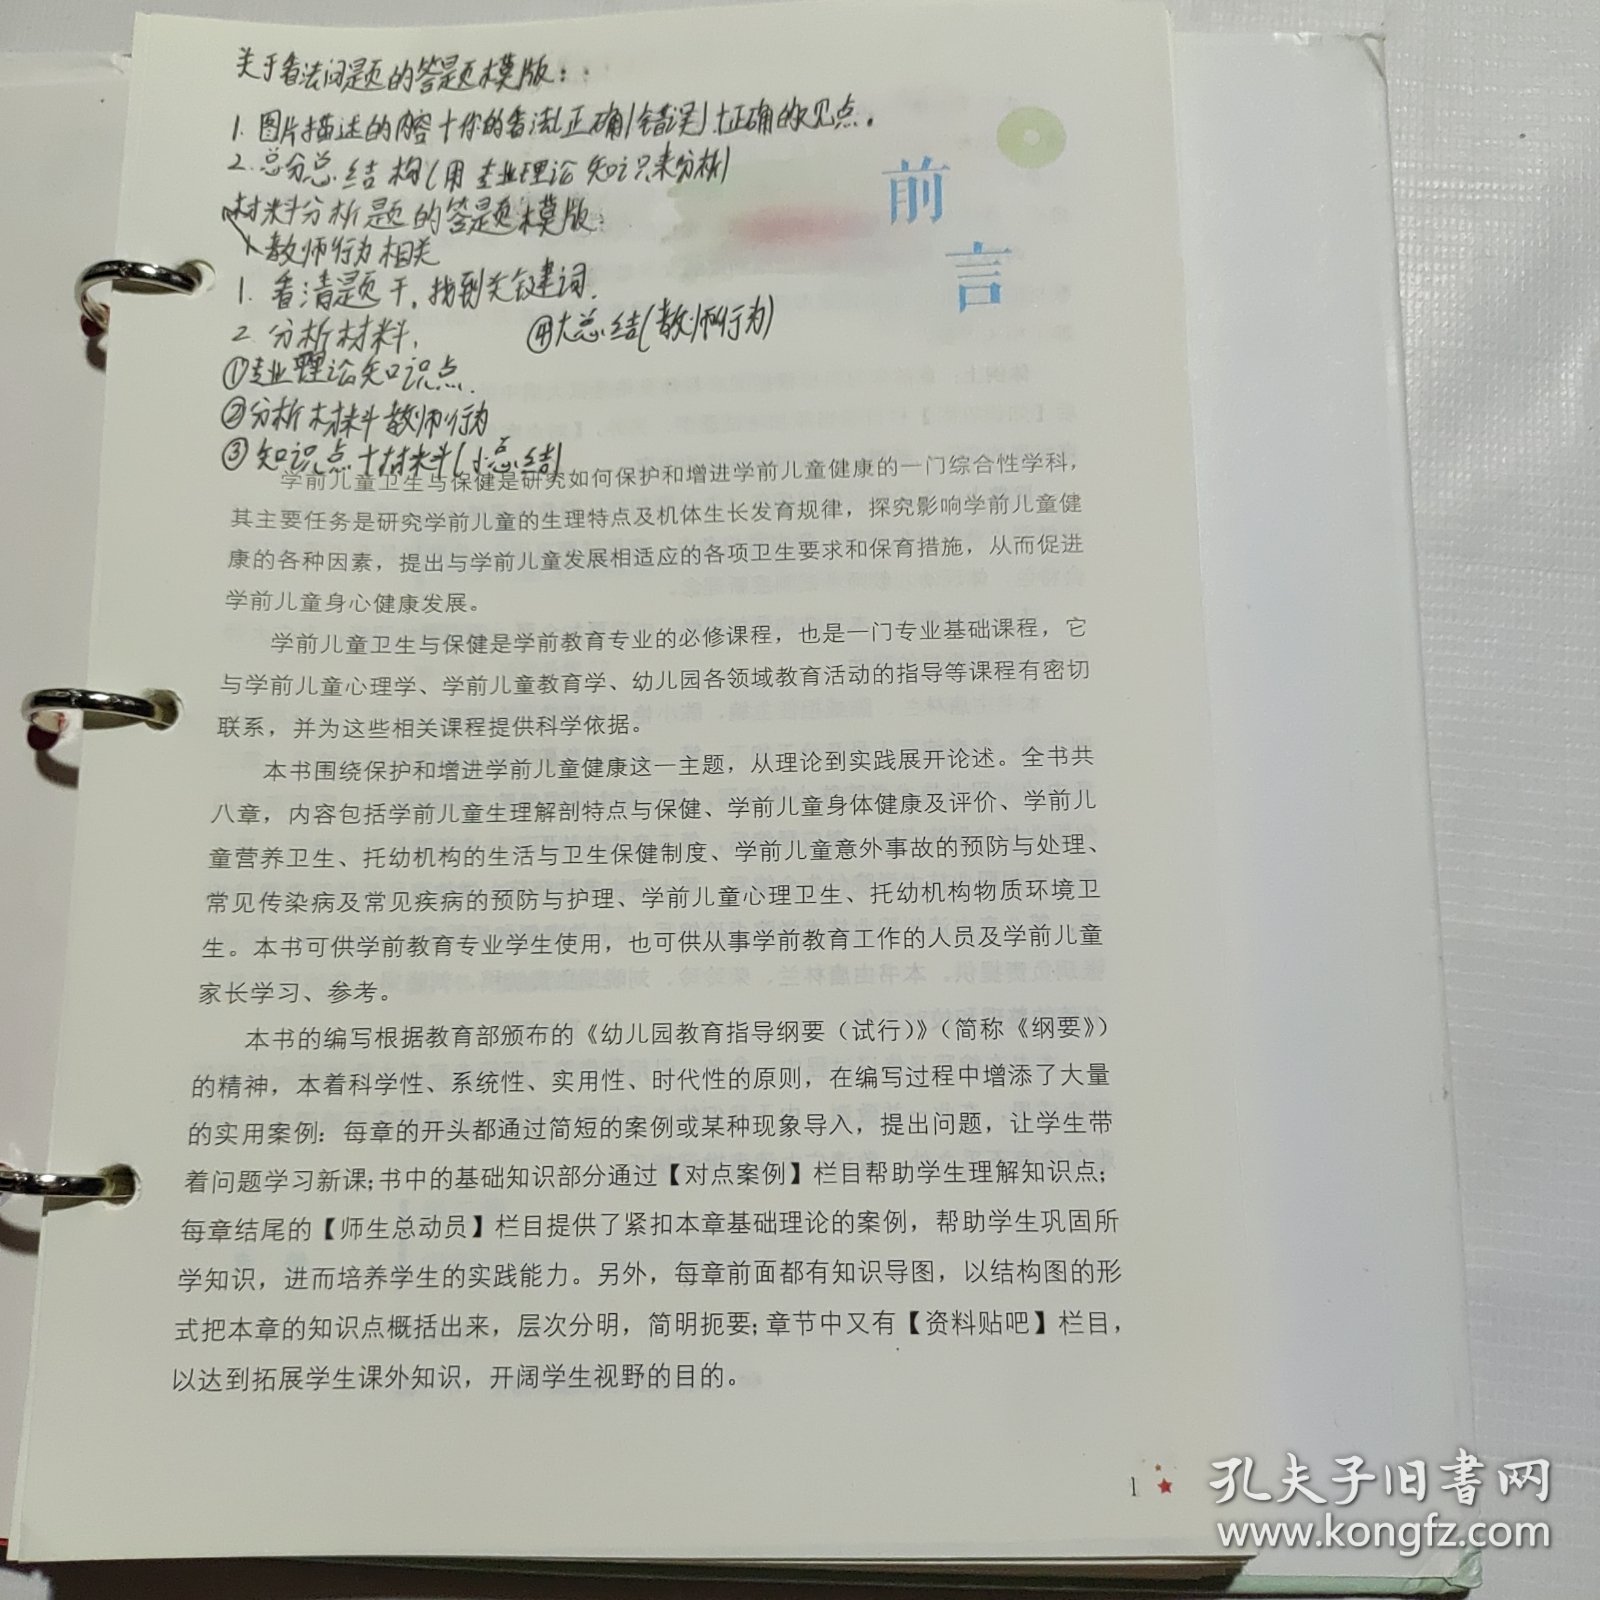 关于看法问题的答题模版：
1. 图片描述的内容+你的看法(正确/错误)+正确的观点。
2. 总分总结构(用专业理论知识来分析)
材料分析题的答题模版：
教师行为相关
1. 看清题干，找到关键词.
2. 分析材料. ④大总结(教师行为)
①专业理论知识点.
②分析材料教师行为
③知识点+材料(小总结)
前言
学前儿童卫生与保健是研究如何保护和增进学前儿童健康的一门综合性学科，
其主要任务是研究学前儿童的生理特点及机体生长发育规律，探究影响学前儿童健
康的各种因素，提出与学前儿童发展相适应的各项卫生要求和保育措施，从而促进
学前儿童身心健康发展。
学前儿童卫生与保健是学前教育专业的必修课程，也是一门专业基础课程，它
与学前儿童心理学、学前儿童教育学、幼儿园各领域教育活动的指导等课程有密切
联系，并为这些相关课程提供科学依据。
本书围绕保护和增进学前儿童健康这一主题，从理论到实践展开论述。全书共
八章，内容包括学前儿童生理解剖特点与保健、学前儿童身体健康及评价、学前儿
童营养卫生、托幼机构的生活与卫生保健制度、学前儿童意外事故的预防与处理、
常见传染病及常见疾病的预防与护理、学前儿童心理卫生、托幼机构物质环境卫
生。本书可供学前教育专业学生使用，也可供从事学前教育工作的人员及学前儿童
家长学习、参考。
本书的编写根据教育部颁布的《幼儿园教育指导纲要（试行）》（简称《纲要》）
的精神，本着科学性、系统性、实用性、时代性的原则，在编写过程中增添了大量
的实用案例：每章的开头都通过简短的案例或某种现象导入，提出问题，让学生带
着问题学习新课；书中的基础知识部分通过【对点案例】栏目帮助学生理解知识点；
每章结尾的【师生总动员】栏目提供了紧扣本章基础理论的案例，帮助学生巩固所
学知识，进而培养学生的实践能力。另外，每章前面都有知识导图，以结构图的形
式把本章的知识点概括出来，层次分明，简明扼要；章节中又有【资料贴吧】栏目，
以达到拓展学生课外知识，开阔学生视野的目的。
1
孔夫子旧书网
www.kongfz.com